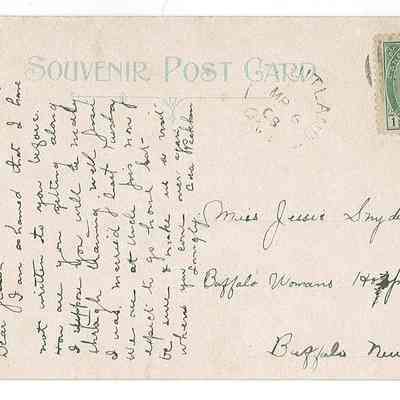 SOUVENIR POST CARD
Dear
I am ashamed that I have
not written to you before.
How are you getting along
I suppose you will be nearly
through training well first
I was married last
We are at just now
expect to go home but
be sure & make us a visit
when you come over again
Lovingly
Miss Jessie Snyde
Buffalo Womans Hosp
Buffalo New
MR
1